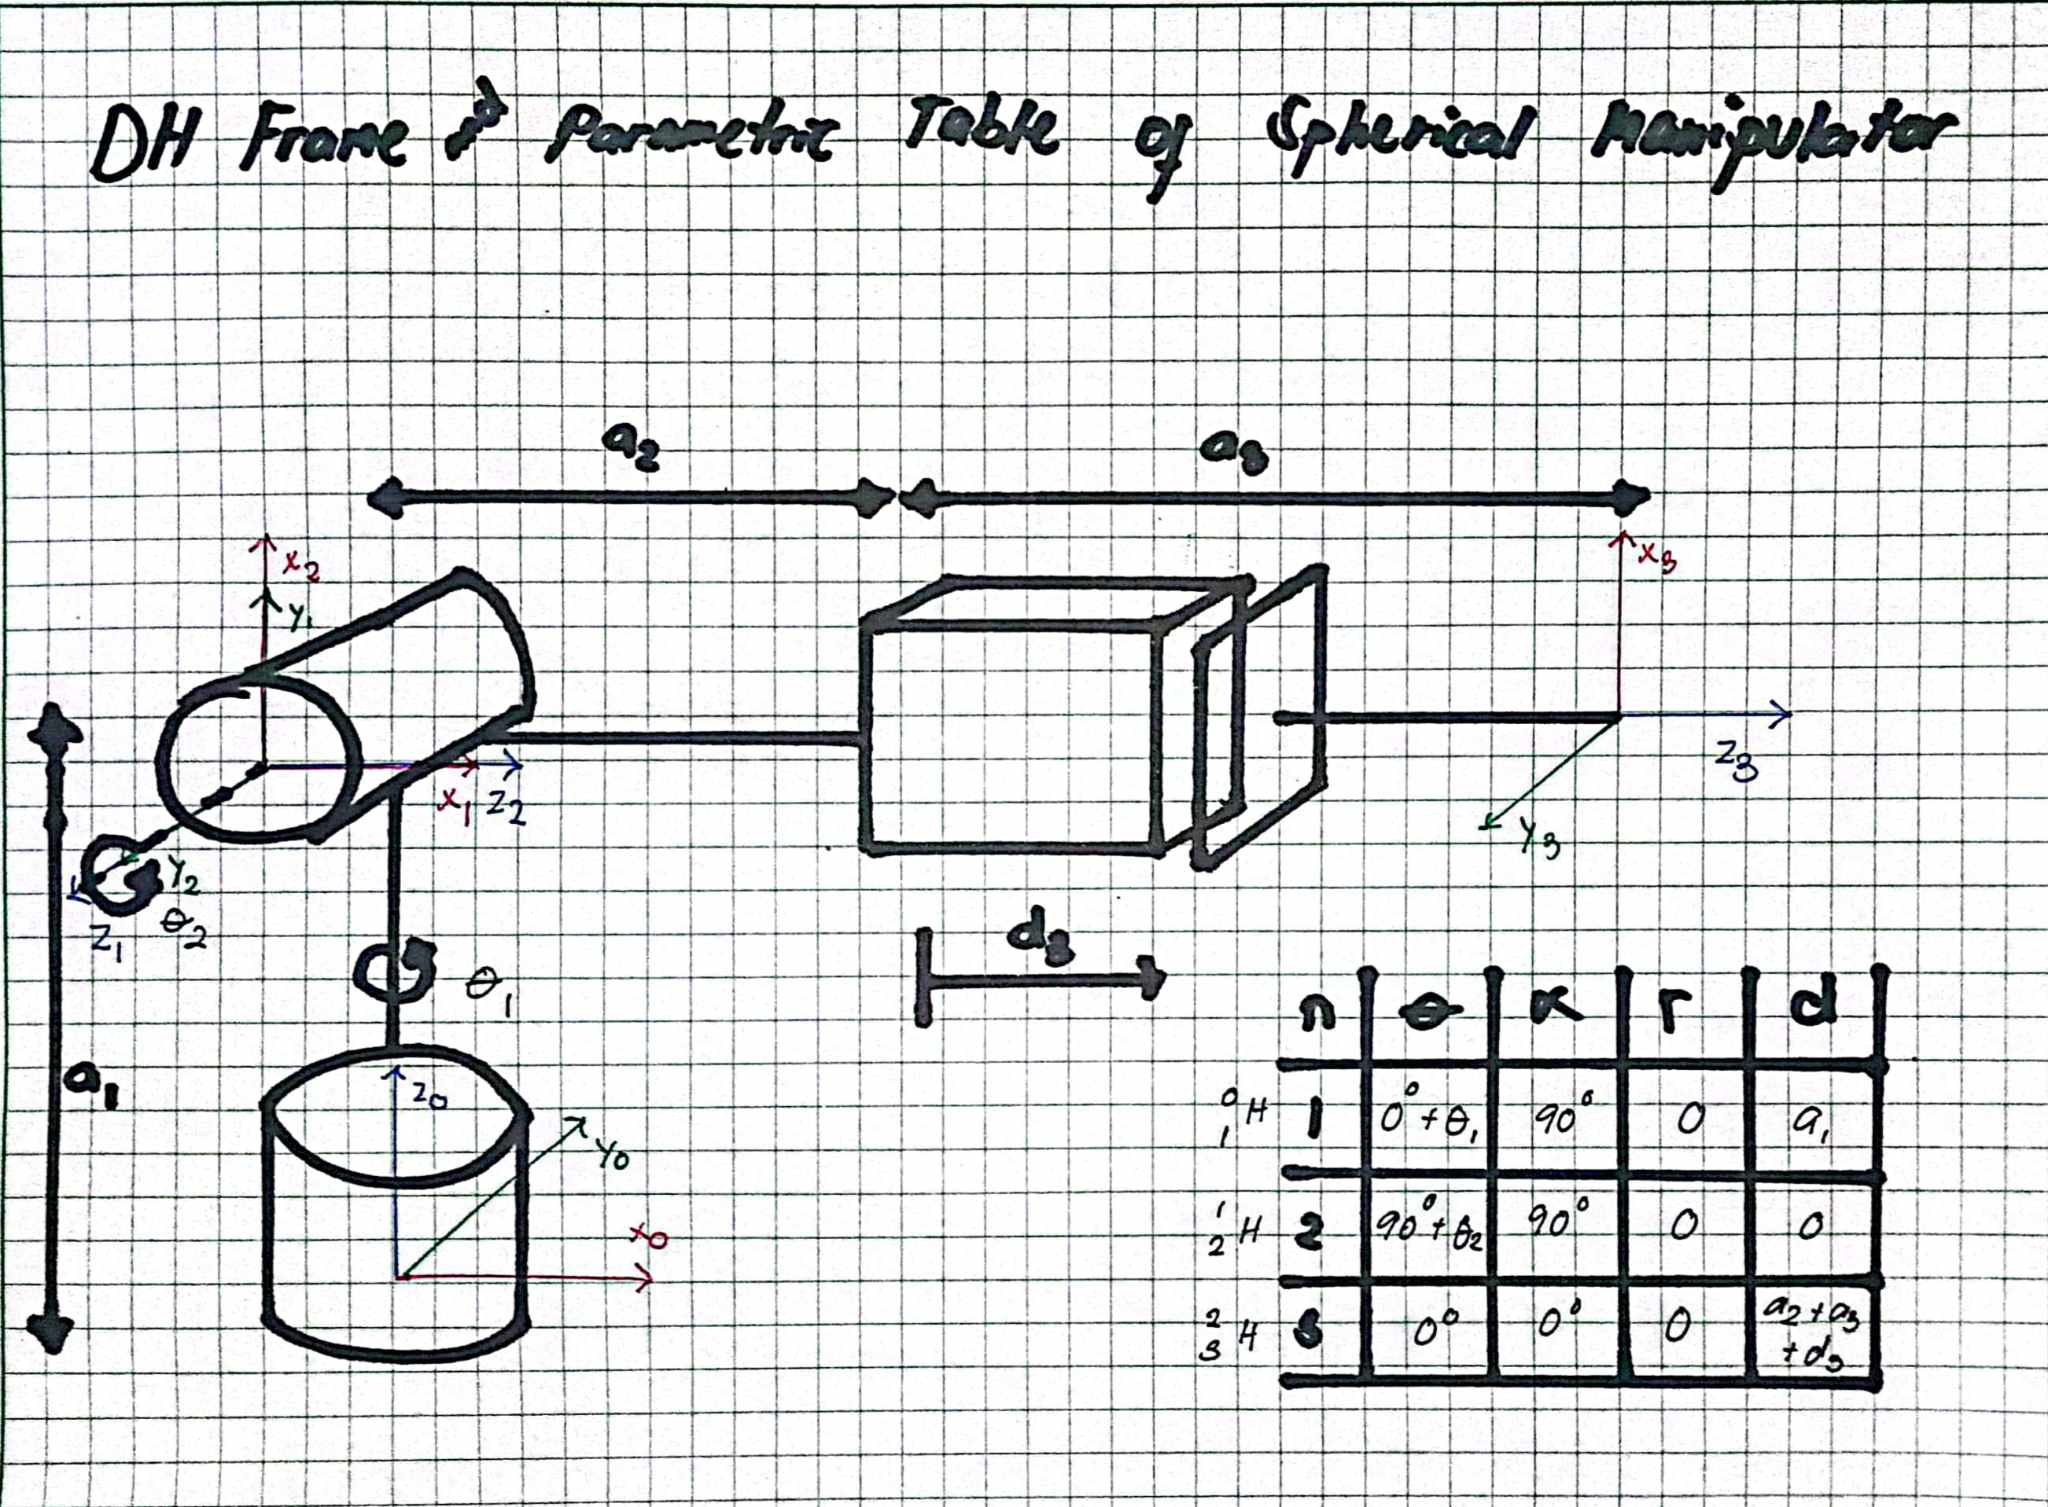 DH Frame & Parametric Table of Spherical Manipulator
a2
a3
x2
y1
x3
x1 z2
z3
y3
y2
z1 θ2
θ1
d3
a1
z0
y0
x0
n θ α r d
0 1 H 1 0°+θ1 90° 0 a1
1 2 H 2 90°+θ2 90° 0 0
2 3 H 3 0° 0° 0 a2+a3
+d3